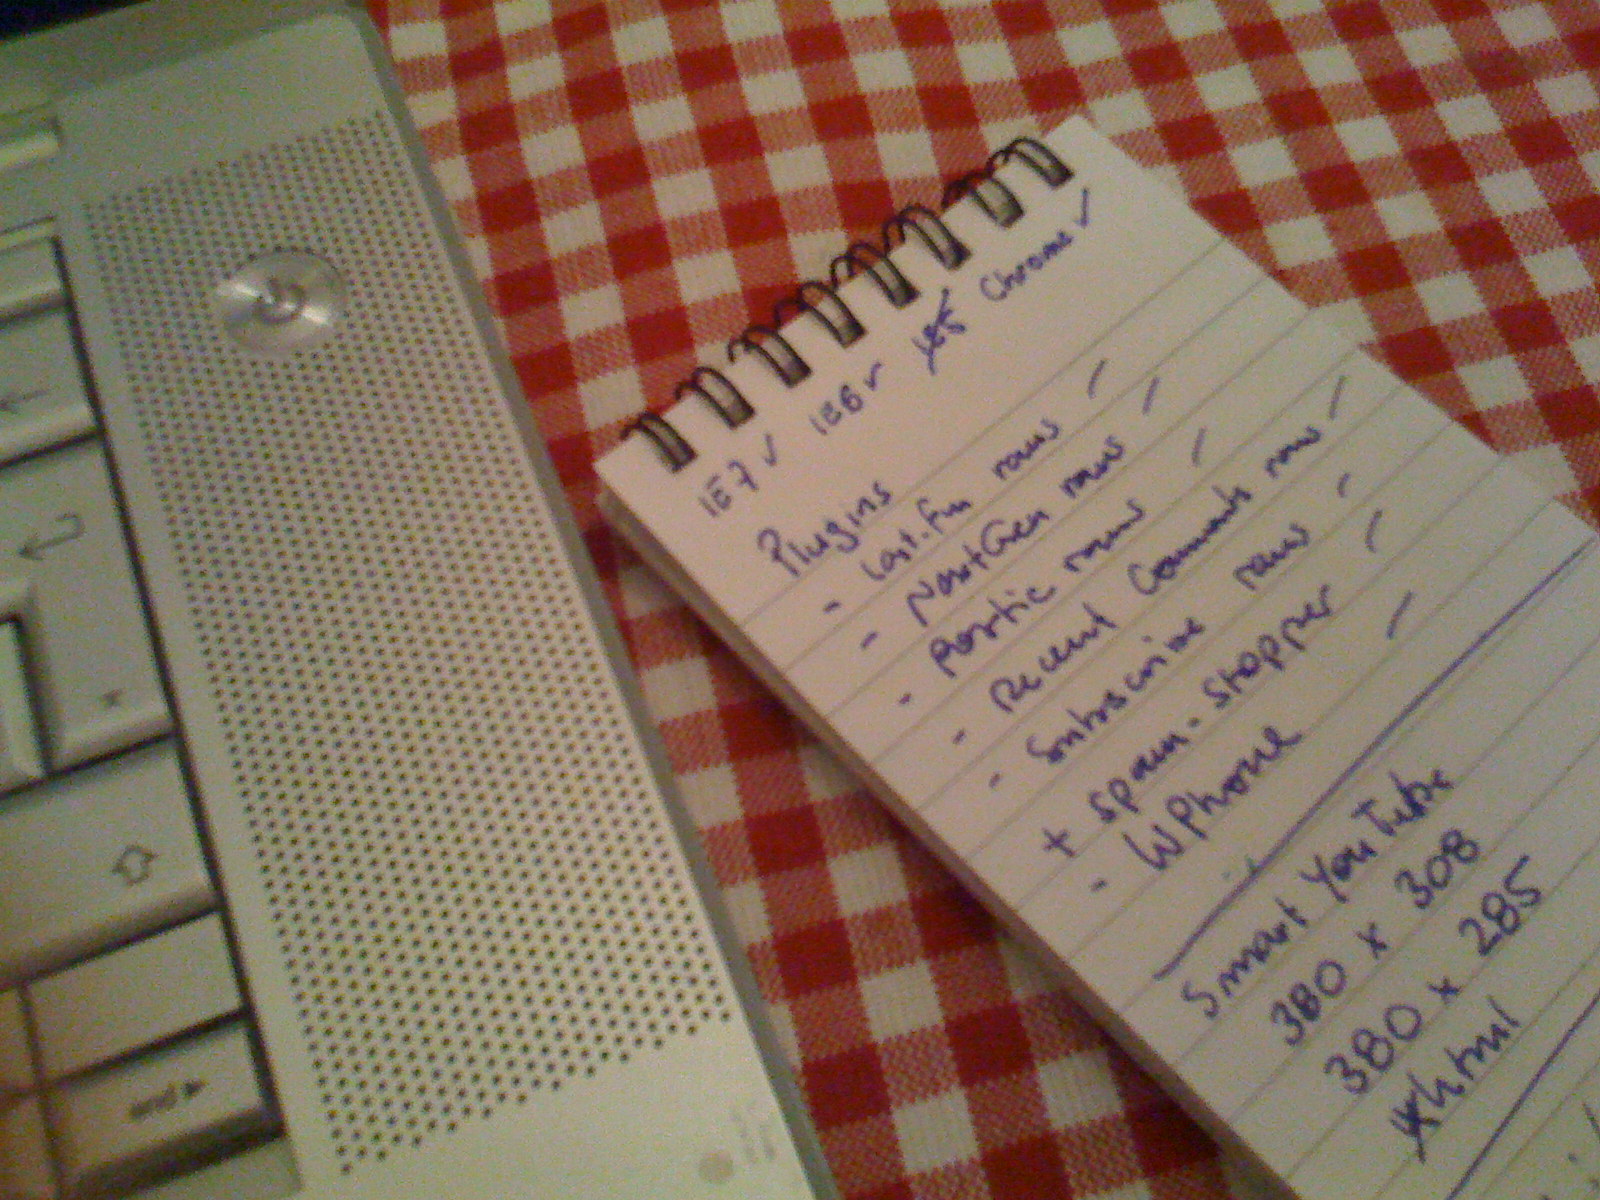 end
IE7 ✓ IE6 ✓ Chrome ✓
Plugins
- Last.fm rows –
- NextGen rows –
- Poptic rows –
- Recent Comments rows –
- Subscribe rows –
+ Spam-stopper –
- WPhone –
Smart YouTube
380 x 308
380 x 285
xhtml